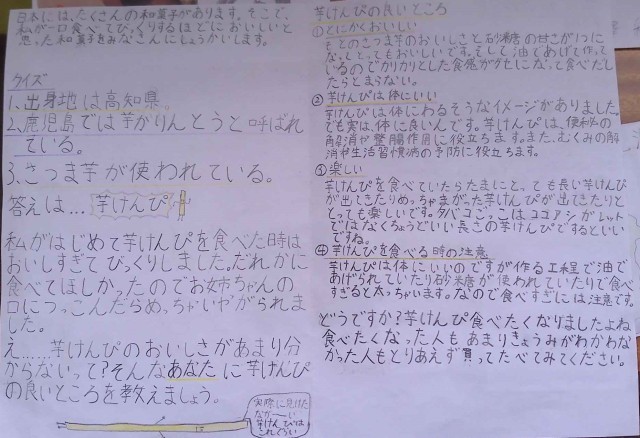 日本には、たくさんの和菓子があります。そこで、
私が一口食べてびっくりするほどにおいしいと
思った和菓子をみなさんにしょうかいします。
クイズ
1、出身地は高知県。
2、鹿児島では芋かりんとうと呼ばれ
ている。
3、さつま芋が使われている。
答えは… 芋けんぴ
私がはじめて芋けんぴを食べた時は
おいしすぎてびっくりしました。だれかに
食べてほしかったのでお姉ちゃんの
口につっこんだらめっちゃいやがられま
した。
え……芋けんぴのおいしさがあまり分
からないって?そんなあなたに芋けんぴ
の良いところを教えましょう。
実際に見けた
なが〜い
芋けんぴは
これくらい
芋けんぴの良いところ
①とにかくおいしい
もとのさつま芋のおいしさと砂糖の甘さが1つに
なってとてもおいしいです。そして油であげて作って
いるのでカリカリとした食感がクセになって食べだし
たらとまらない。
②芋けんぴは体にいい
芋けんぴは体にわるそうなイメージがありました。
でも実は、体に良いんです。芋けんぴは、便秘の
解消や整腸作用に役立ちます。また、むくみの解
消や生活習慣病の予防に役立ちます。
③楽しい
芋けんぴを食べていたらたまにとっても長い芋けんぴ
が出てきたりめっちゃまがった芋けんぴが出てきたりと
とっても楽しいです。タバコごっこはココアシガレット
ではなくちょうどいい長さの芋けんぴでするといい
ですね。
④芋けんぴを食べる時の注意
芋けんぴは体にいいのですが作る工程で油で
あげられていたり砂糖が使われていたりで食べ
すぎると太っちゃいます。なので食べすぎには注意です。
どうですか?芋けんぴ食べたくなりましたよね
食べたくなった人もあまりきょうみがわかわな
かった人もとりあえず買ってたべてみてください。